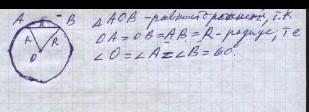 A B
R R
O
△AOB - равносторонний, т.к.
OA = OB = AB = R - радиус, те
∠O = ∠A = ∠B = 60.